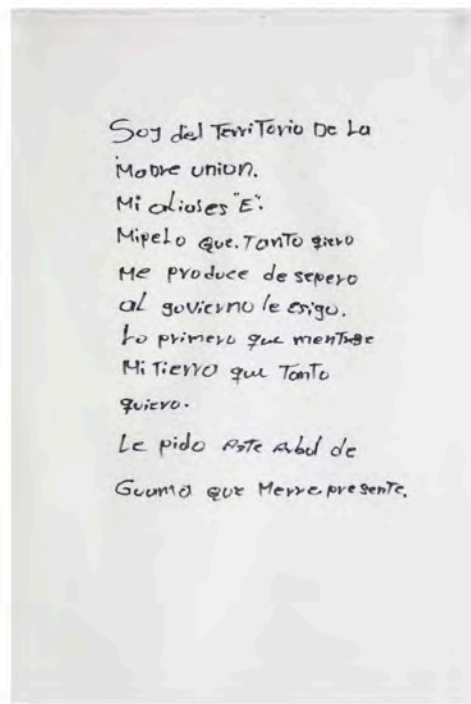 Soy del TerriTorio De La
Madre union.
Mi aliases "E".
Mipelo que. Tanto qiero
Me produce de sepero
al govierno le esigo.
Lo primero que mentrege
Mi Tierra que Tanto
quiero.
Le pido este Arbol de
Guama que Merrepresente.